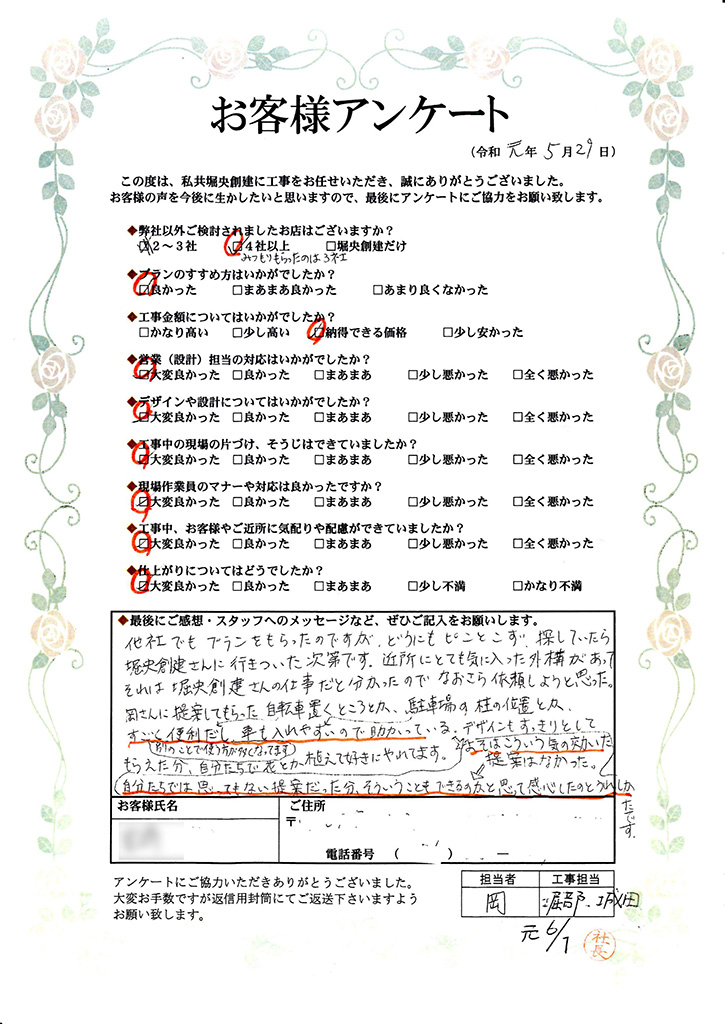 お客様アンケート
(令和 元年 5月29日)
この度は、私共堀央創建に工事をお任せいただき、誠にありがとうございました。
お客様の声を今後に生かしたいと思いますので、最後にアンケートにご協力をお願い致します。
◆弊社以外ご検討されましたお店はございますか?
□2〜3社 □4社以上 □堀央創建だけ
みつもりもらったのは3社
◆プランのすすめ方はいかがでしたか?
□良かった □まあまあ良かった □あまり良くなかった
◆工事金額についてはいかがでしたか?
□かなり高い □少し高い □納得できる価格 □少し安かった
◆営業(設計)担当の対応はいかがでしたか?
□大変良かった □良かった □まあまあ □少し悪かった □全く悪かった
◆デザインや設計についてはいかがでしたか?
□大変良かった □良かった □まあまあ □少し悪かった □全く悪かった
◆工事中の現場の片づけ、そうじはできていましたか?
□大変良かった □良かった □まあまあ □少し悪かった □全く悪かった
◆現場作業員のマナーや対応は良かったですか?
□大変良かった □良かった □まあまあ □少し悪かった □全く悪かった
◆工事中、お客様やご近所に気配りや配慮ができていましたか?
□大変良かった □良かった □まあまあ □少し悪かった □全く悪かった
◆仕上がりについてはどうでしたか?
□大変良かった □良かった □まあまあ □少し不満 □かなり不満
◆最後にご感想・スタッフへのメッセージなど、ぜひご記入をお願いします。
他社でもプランをもらったのですが、どうにもピンとこず、探していたら
堀央創建さんに行きついた次第です。近所にとても気に入った外構があって
それは堀央創建さんの仕事だと分かったのでなおさら依頼しようと思った。
岡さんに提案してもらった自転車置くところとか、駐車場の柱の位置とか、
すごく便利だし、車も入れやすいので助かっている。デザインもすっきりとして
別のことで使う方が多くなってます
もらえた分、自分たちで花とか植えて好きにやれてます。
他社はこういう気の効いた
提案はなかった。
自分たちでは思ってもない提案だった分、そういうこともできるのかと思って感心したのとうれしか
たです。
お客様氏名 ご住所
〒
電話番号 ( ) ー
アンケートにご協力いただきありがとうございました。
大変お手数ですが返信用封筒にてご返送下さいますよう
お願い致します。
担当者 工事担当
岡 堀部、成田
元 6/1
社長